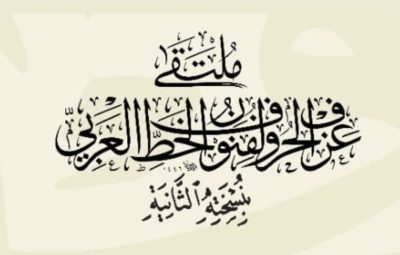 مُلتقى
عزف الحروف لفنون الخط العربيّ
بِنُسخَتِهِ الثَّانِيَةِ